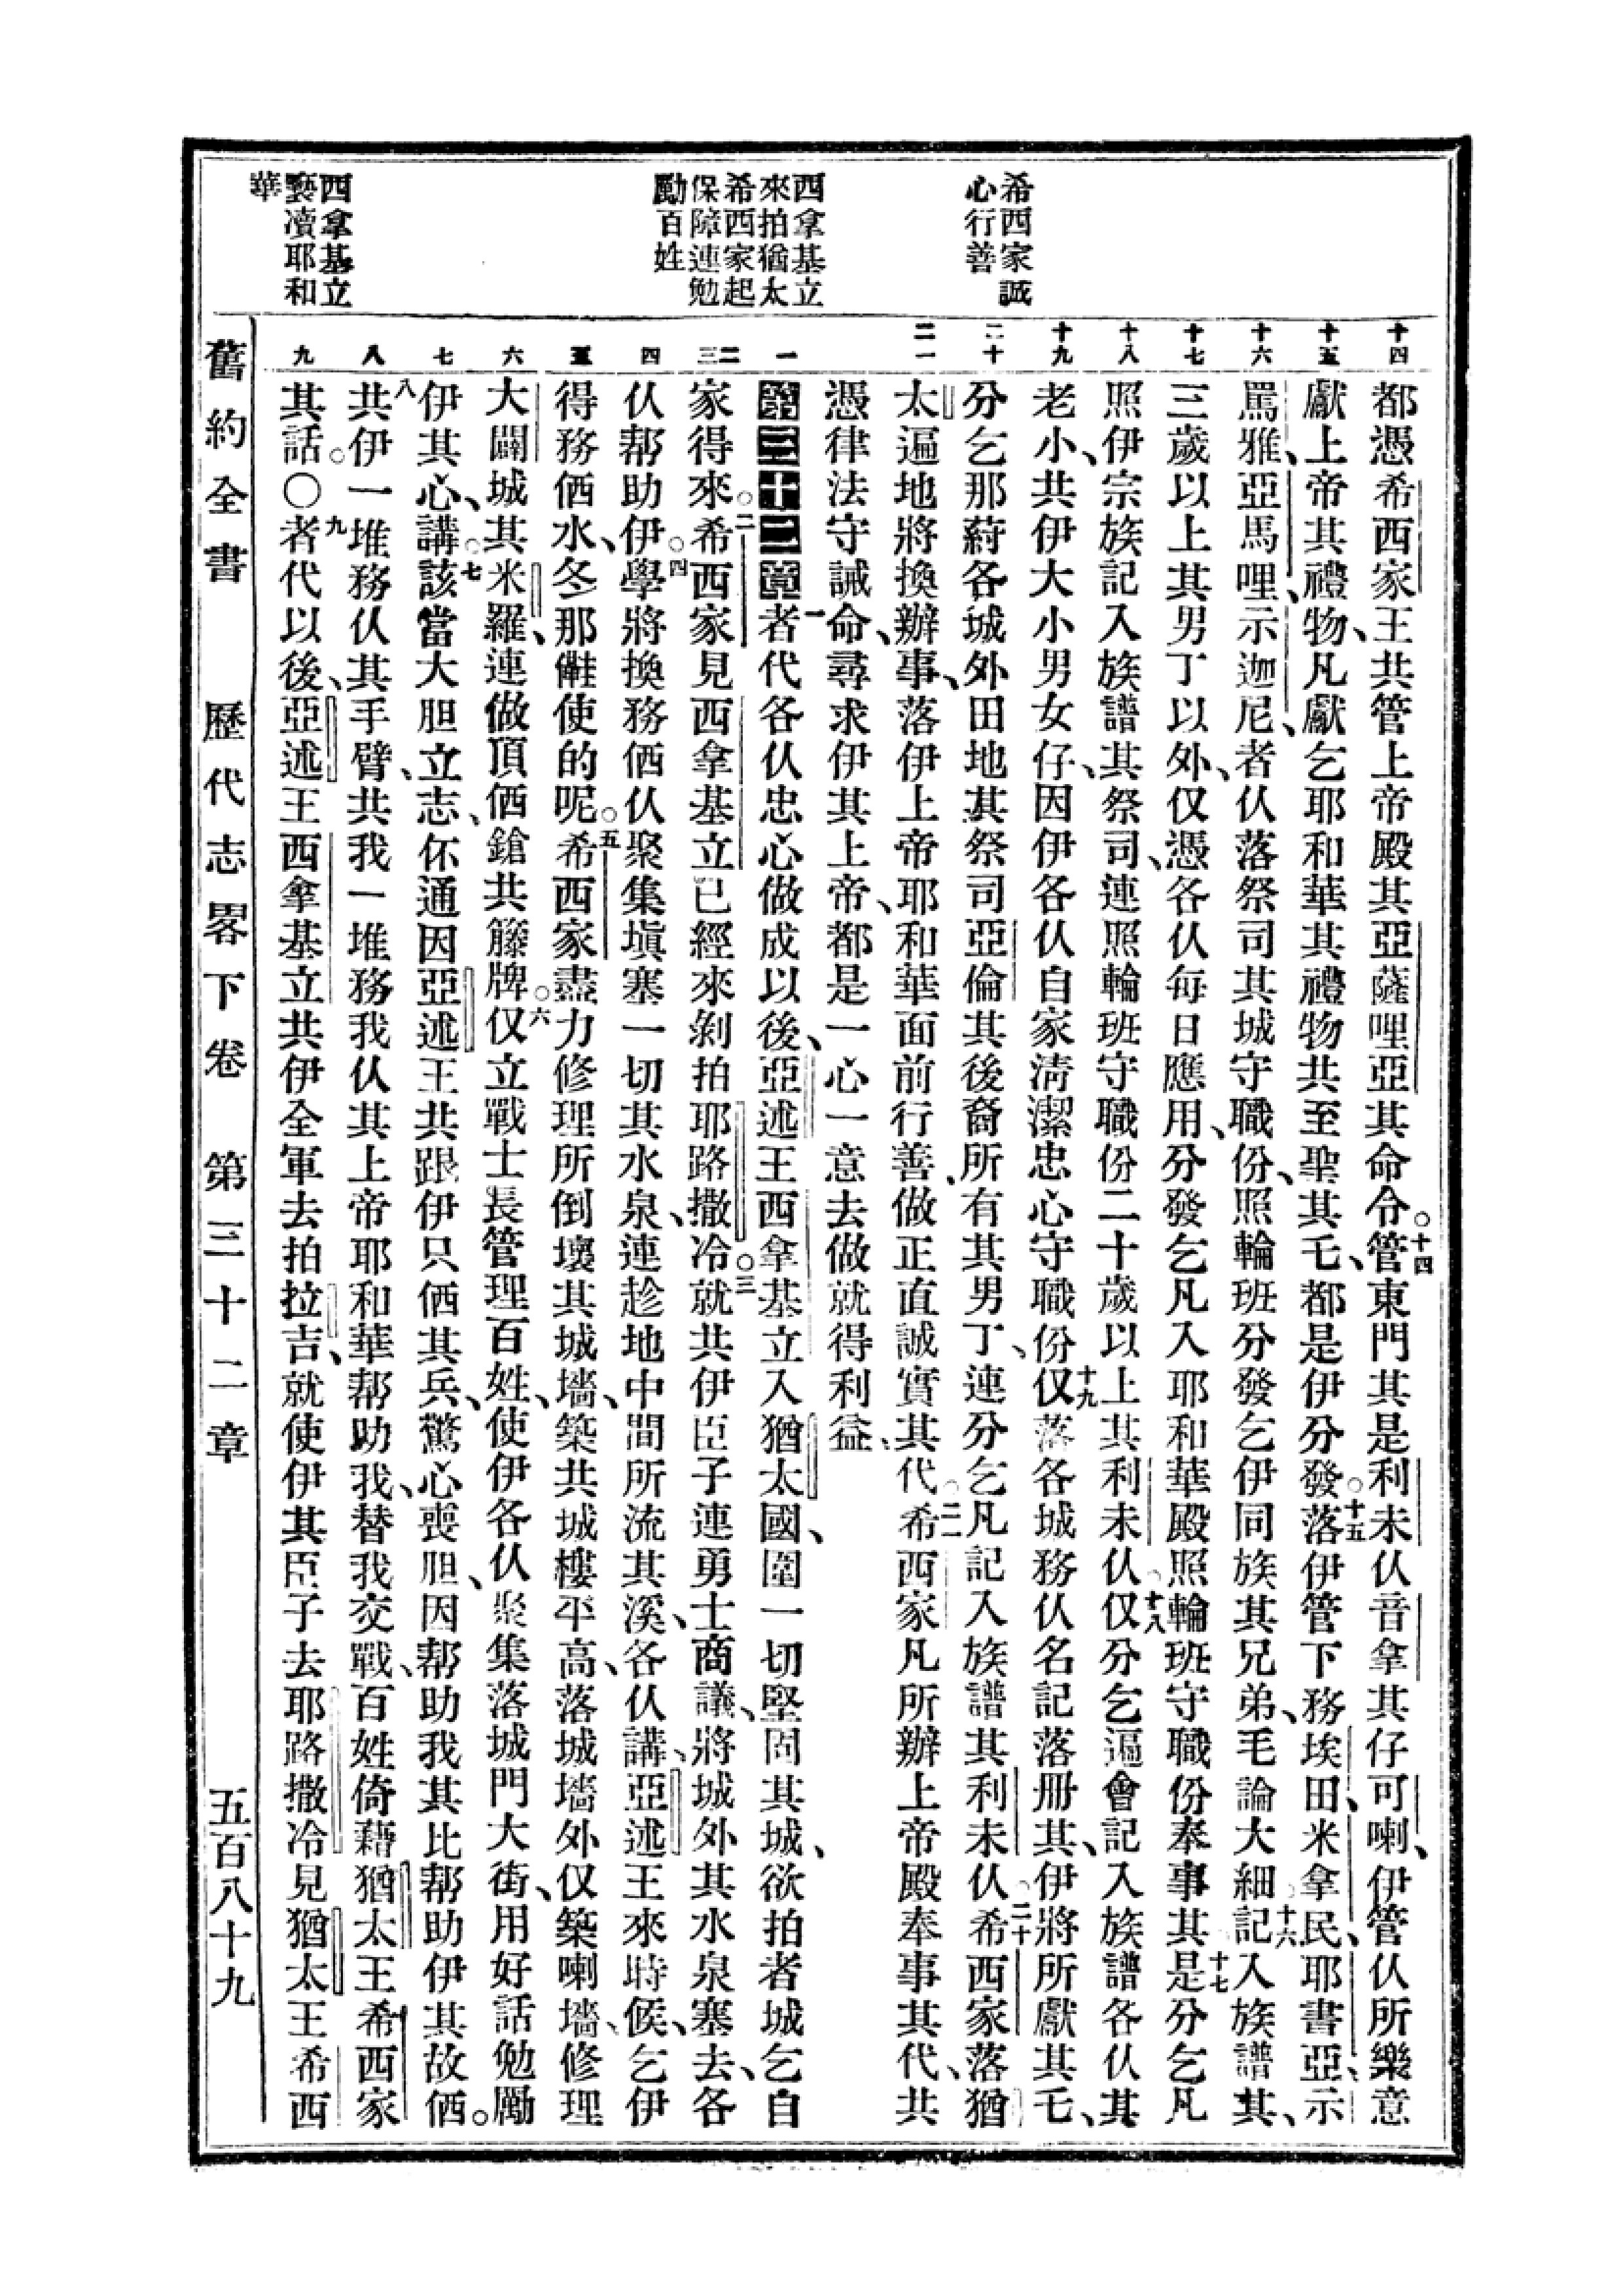 希西家誠
心行善
西拿基立
來拍猶太
希西家起
保障連勉
勵百姓
西拿基立
褻瀆耶和
華
十四
十五
十六
十七
十八
十九
二十
二一
一
二
三
四
五
六
七
八
九
都憑希西家王共管上帝殿其亞薩哩亞其命令。十四管東門其是利未仈音拿其仔可喇、伊管仈所樂意
獻上帝其禮物、凡獻乞耶和華其禮物共至聖其乇、都是伊分發。十五落伊管下務埃田、米拿民、耶書亞、示
罵雅、亞馬哩、示迦尼、者仈落祭司其城守職份、照輪班分發乞伊同族其兄弟、毛論大細。十六記入族譜其、
三歲以上其男丁以外、仅憑各仈每日應用、分發乞凡入耶和華殿照輪班守職份奉事其。十七是分乞凡
照伊宗族記入族譜其祭司、連照輪班守職份二十歲以上其利未仈。十八仅分乞遍會記入族譜各仈其
老小、共伊大小男女仔、因伊各仈自家清潔忠心守職份。十九仅落各城務仈名記落冊其、伊將所獻其乇、
分乞那葤各城外田地其祭司亞倫其後裔所有其男丁、連分乞凡記入族譜其利未仈。二十希西家落猶
太遍地將換辦事、落伊上帝耶和華面前行善、做正直誠實其代。二一希西家凡所辦上帝殿奉事其代、共
憑律法守誡命、尋求伊其上帝、都是一心一意去做就得利益、
第三十二章一者代各仈忠心做成以後、亞述王西拿基立入猶太國、圍一切堅固其城、欲拍者城乞自
家得來。二希西家見西拿基立已經來剝拍耶路撒冷。三就共伊臣子連勇士商議、將城外其水泉塞去、各
仈帮助伊。四學將換務𠆧仈聚集塡塞一切其水泉、連趁地中間所流其溪、各仈講、亞述王來時候、乞伊
得務𠆧水、冬那㒼使的呢。五希西家盡力修理所倒壞其城墻、築共城樓平高、落城墻外仅築喇墻、修理
大闢城其米羅、連做頂𠆧鎗共籐牌。六仅立戰士長管理百姓、使伊各仈聚集落城門大街、用好話勉勵
伊其心、講。七該當大胆立志、伓通因亞述王共跟伊只𠆧其兵、驚心喪胆、因帮助我其比帮助伊其故𠆧。
八共伊一堆務仈其手臂、共我一堆務我仈其上帝耶和華帮助我、替我交戰、百姓倚藉猶太王希西家
其話。〇九者代以後、亞述王西拿基立共伊全軍去拍拉吉、就使伊其臣子去耶路撒冷見猶太王希西
舊約全書　歷代志畧下卷　第三十二章　五百八十九